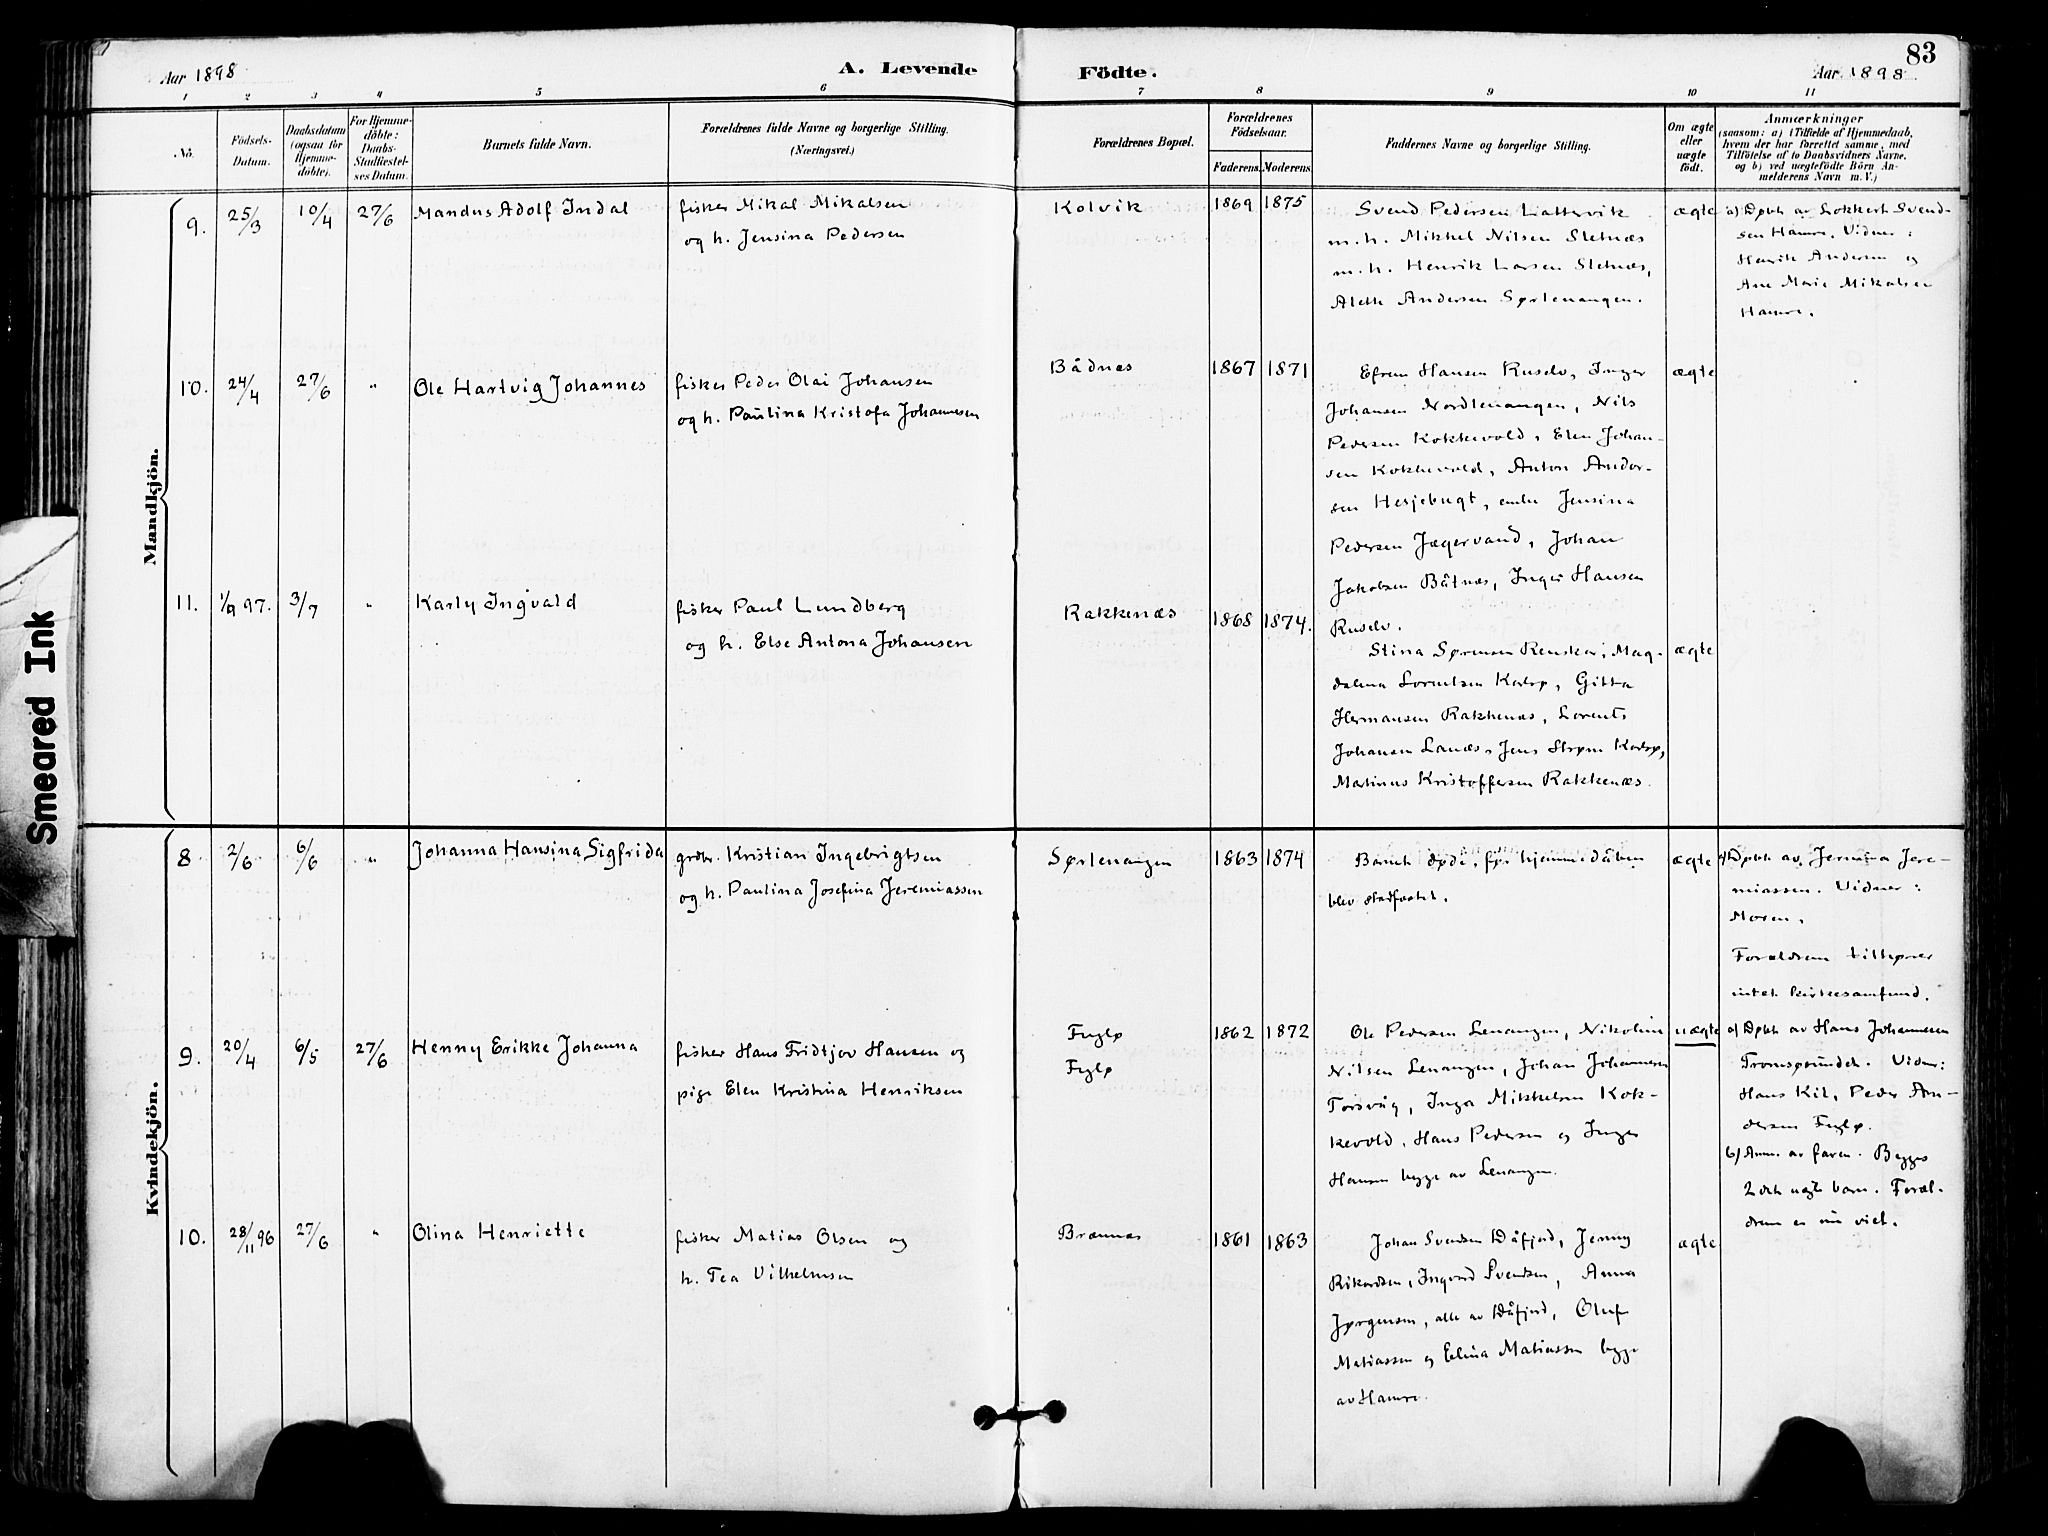 Aar 1898
A. Levende
Födte.
83
Aar 1898
1 2 3 4 5 6 7 8 9 10 11
No.
Födsels-
Datum.
Daabsdatum
(ogsaa for
Hjemme-
döbte).
For Hjemme-
döbte:
Daabs-
Stadfæstel-
ses Datum.
Barnets fulde Navn.
Forældrenes fulde Navne og borgerlige Stilling.
(Næringsvei.)
Forældrenes Bopæl.
Forældrenes
Födselsaar.
Faderens. Moderens.
Faddernes Navne og borgerlige Stilling.
Om ægte
eller
uægte
födt.
Anmærkninger
(saasom: a) i Tilfælde af Hjemmedaab,
hvem der har forrettet samme, med
Tilföielse af to Daabsvidners Navne,
og b) ved uægtefödte Börn An-
melderens Navn m. V.)
Mandkjön.
9. 25/3 10/4 27/6 Mandus Adolf Indal
fisker Mikal Mikalsen
og h. Jensina Pedersen
Kolvik 1869 1875
Svend Pedersen Lattervik
m. h. Mikkel Nilsen Sletnæs
m. h. Henrik Larsen Sletnæs,
Aleth Andersen Sørlenangen.
ægte
a) Døbt av Lokkert Svend-
sen Hamre. Vidner:
Henrik Andersen og
Ane Marie Mikalsen
Hamre.
10. 24/4 27/6 " Ole Hartvig Johannes
fisker Peder Olai Johansen
og h. Paulina Kristofa Johannesen
Bådnes 1867 1871
Efrem Hansen Ruselv, Inger
Johansen Nordlenangen, Nils
Pedersen Kokkevold, Elen Johan-
sen Kokkevold, Anton Ander-
sen Hesjebugt, enke Jensina
Pedersen Jægervand, Johan
Jakobsen Båtnes, Inger Hansen
Ruselv.
ægte
11. 1/9 97. 3/7 " Karly Ingvald
fisker Paul Lundberg
og h. Else Antona Johansen
Rakkenæs 1868 1874.
Stina Sørensen Renskar, Mag-
dalena Lorentsen Karlsø, Gitta
Hermansen Rakkenæs, Lorents
Johansen Lanæs, Jens Strøm Karlsø,
Martinus Kristoffersen Rakkenæs.
ægte
Kvindekjön.
8 2/6 6/6 " Johanna Hansina Sigfrida
grdbr. Kristian Ingebrigtsen
og h. Paulina Josefina Jeremiassen
Sørlenangen 1863 1874
Barnet døde, før hjemmedåben
blev stadfæstet.
ægte
a) Døbt av Jermina Jere-
miassen. Vidner:
Moren.
Forældrene tilhører
intet kirkesamfund.
9. 20/4 6/5 27/6 Henny Erikke Johanna
fisker Hans Fridtjov Hansen og
pige Elen Kristina Henriksen
Fuglø
Fuglø
1862 1872
Ole Pedersen Lenangen, Nikoline
Nilsen Lenangen, Johan Johannesen
Torsvåg, Inga Mikkelsen Kok-
kevold, Hans Pedersen og Inger
Hansen begge av Lenangen.
uægte
a) Døbt av Hans Johannesen
Tromsøsundet. Vidner:
Hans Kil, Peder An-
dersen Fuglø.
b) Anm. av faren. Begges
2det uægte barn. Foræl-
drene er nu viet.
10. 28/11 96 27/6 " Olina Henriette
fisker Matias Olsen og
h. Tea Vilhelmsen
Brænnæs 1861 1863
Johan Svendsen Dåfjord, Jenny
Rikardsen, Ingvard Svendsen, Anna
Jørgensen, alle av Dåfjord, Oluf
Matiassen og Elina Matiassen begge
av Hamre.
ægte
Smeared Ink